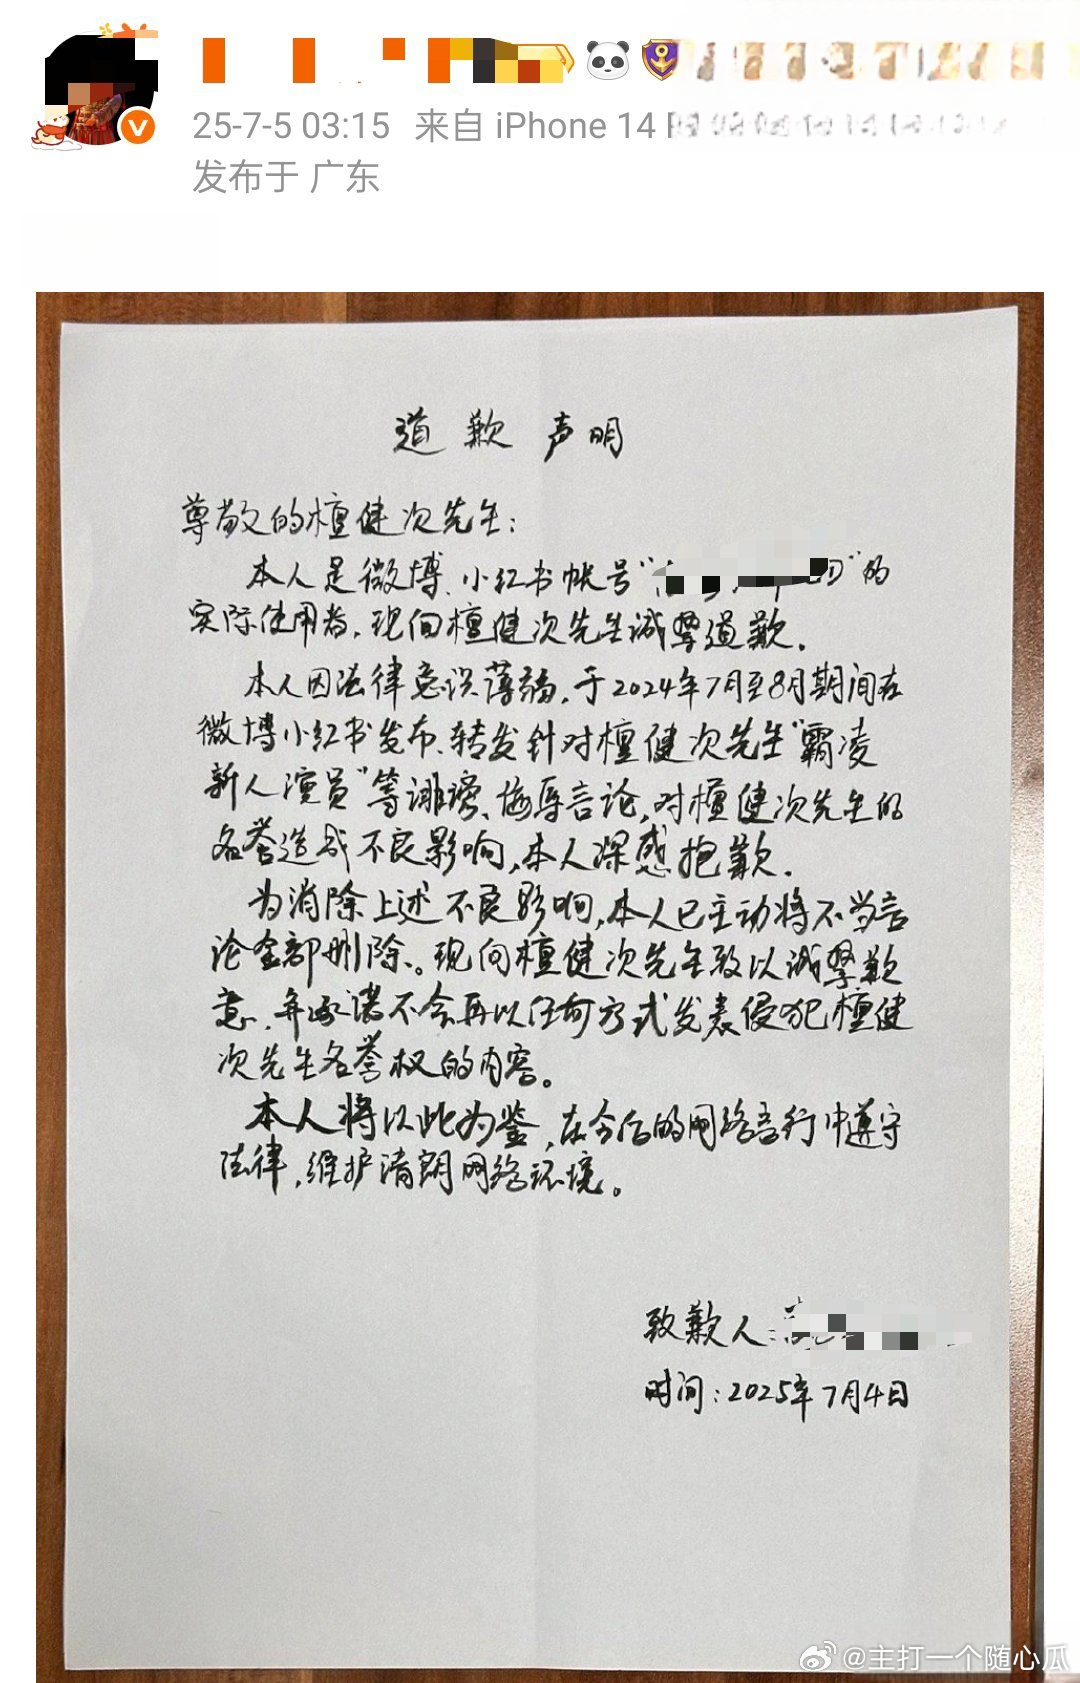 25-7-5 03:15 来自 iPhone 14
发布于 广东
道歉声明
尊敬的檀健次先生：
本人是微博、小红书帐号“ ”的
实际使用者，现向檀健次先生诚挚道歉。
本人因法律意识薄弱，于2024年7月至8月期间在
微博小红书发布、转发针对檀健次先生“霸凌
新人演员”等诽谤、侮辱言论，对檀健次先生的
名誉造成不良影响，本人深感抱歉。
为消除上述不良影响，本人已主动将不当言
论全部删除。现向檀健次先生致以诚挚歉
意，并承诺不会再以任何方式发表侵犯檀健
次先生名誉权的内容。
本人将以此为鉴，在今后的网络言行中遵守
法律，维护清朗网络环境。
致歉人：
时间：2025年7月4日
@主打一个随心瓜